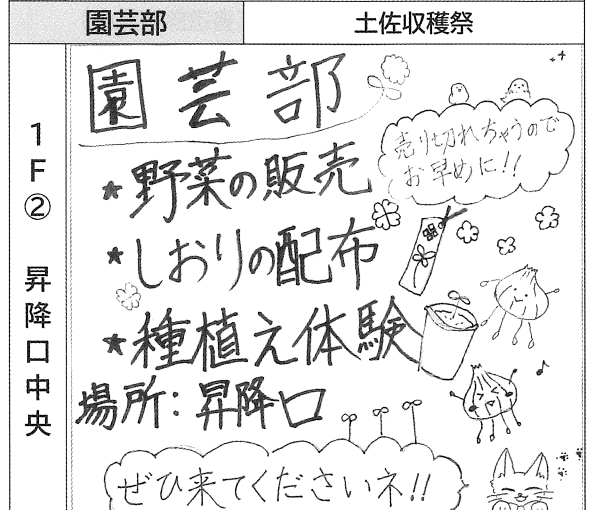 園芸部
土佐収穫祭
1F② 昇降口中央
園芸部
売り切れちゃうので
お早めに!!
★野菜の販売
★しおりの配布
★種植え体験
場所:昇降口
ぜひ来てくださいネ!!